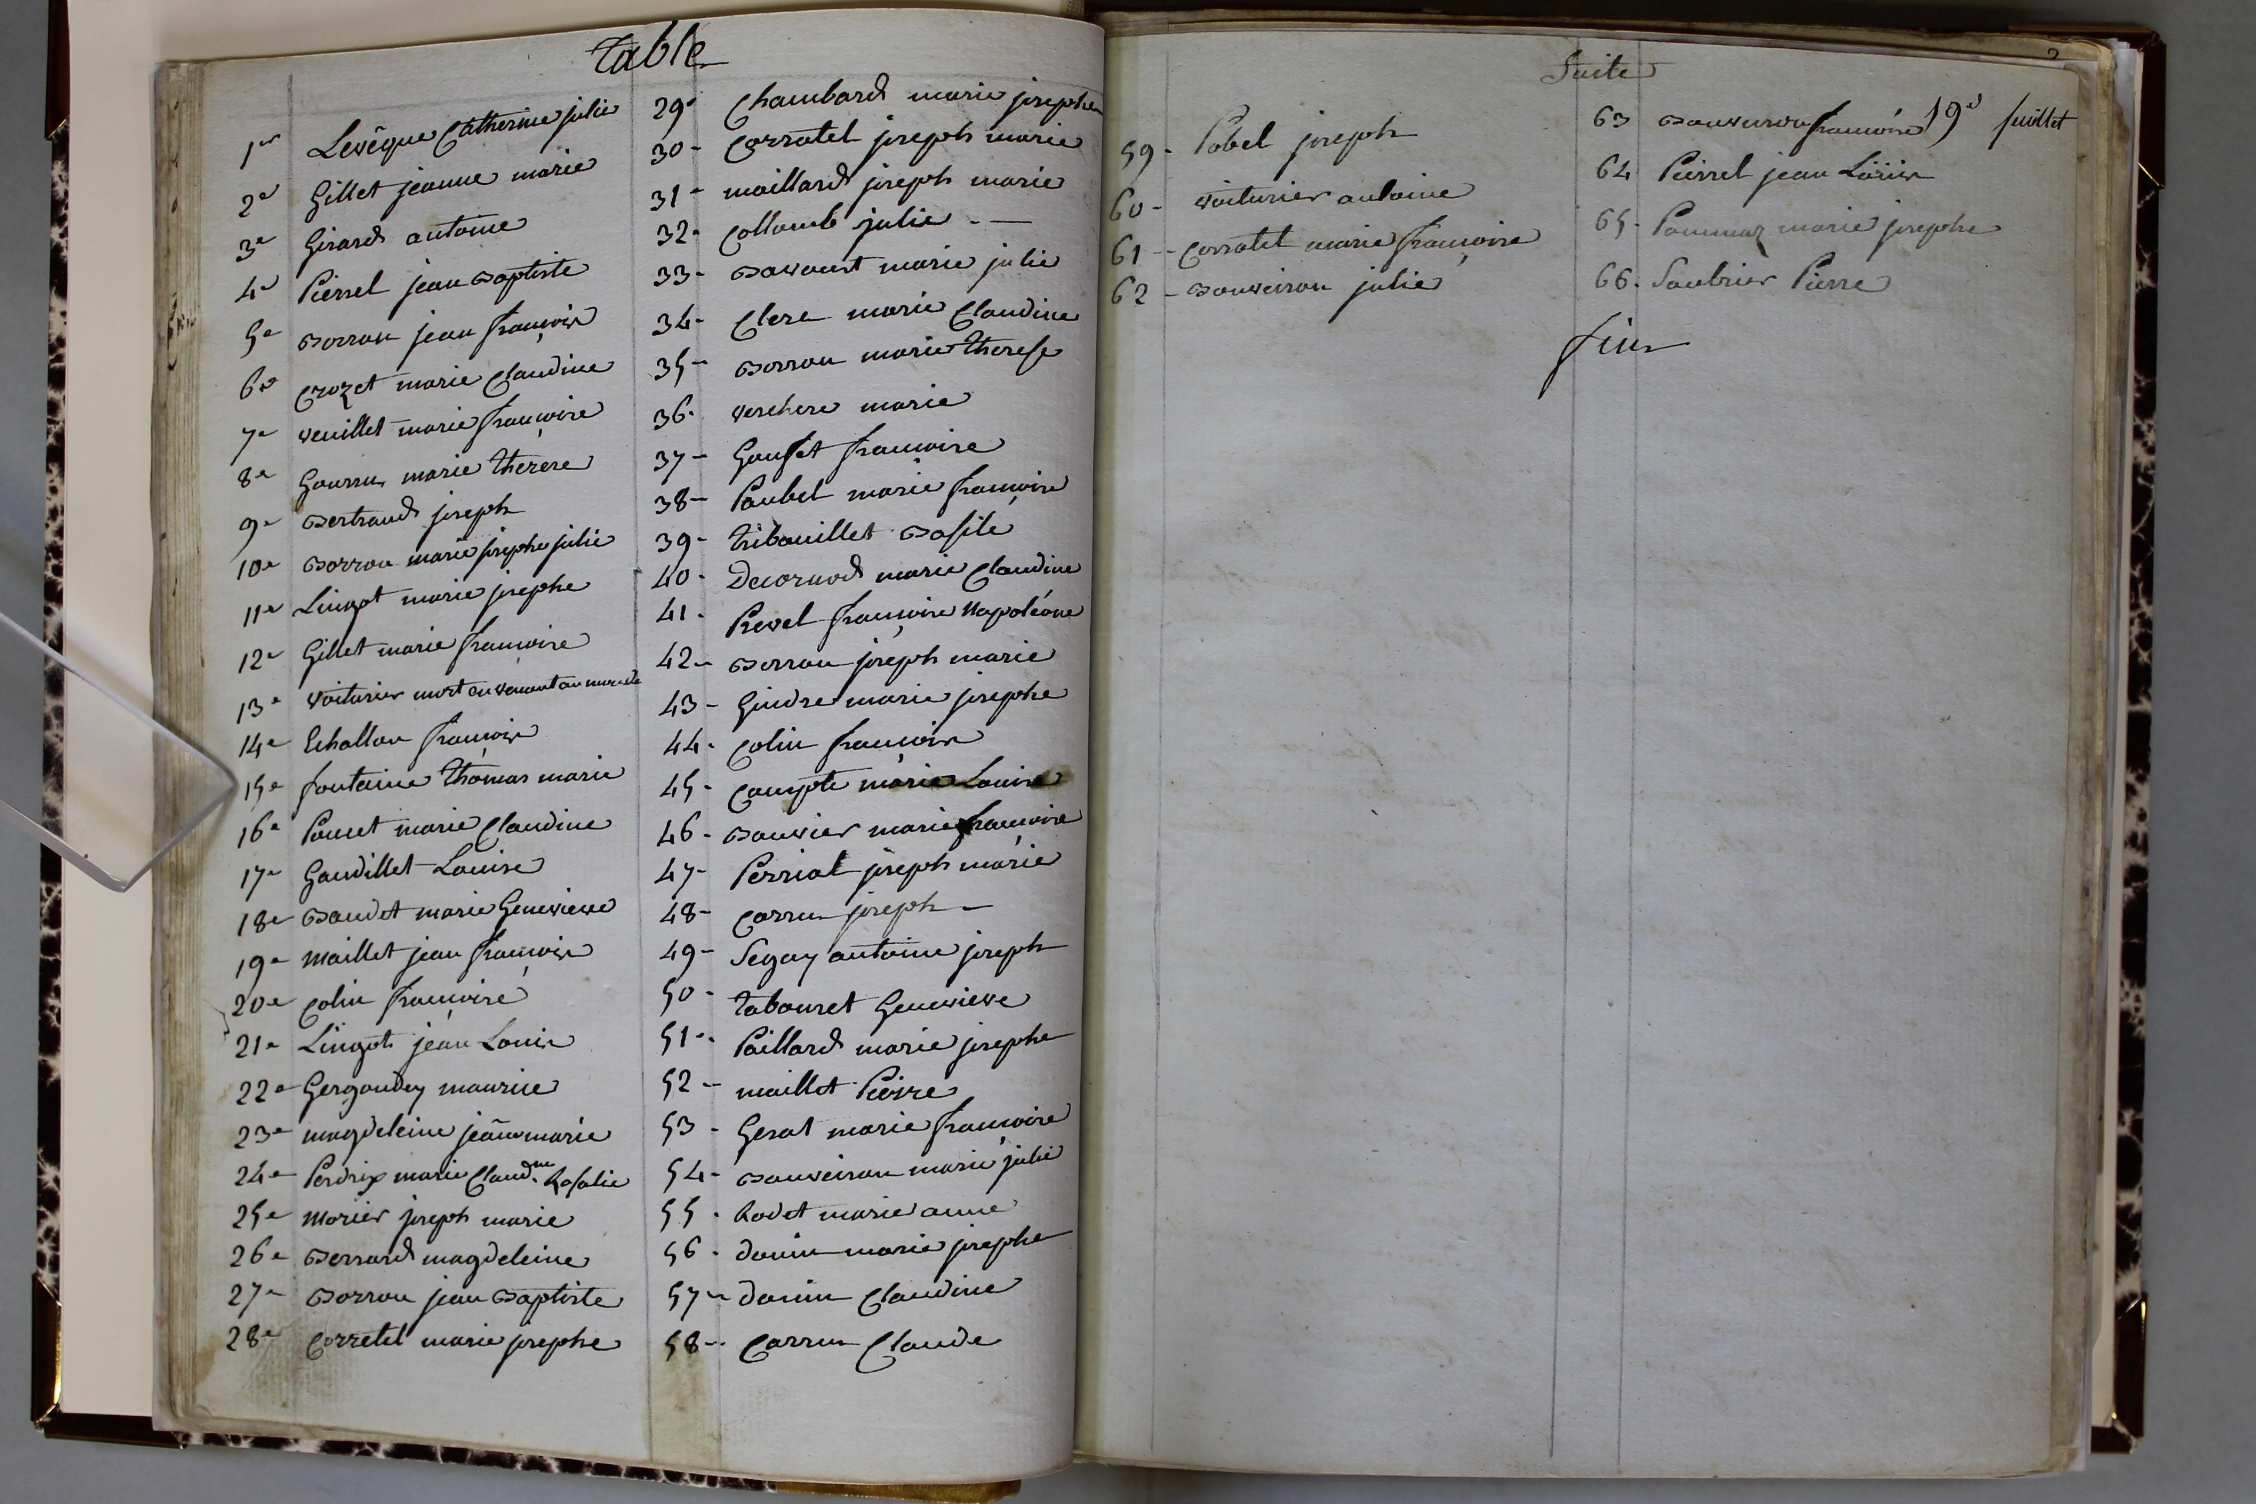 Table
1er Levêque Catherine julie
2e Gillet jeanne marie
3e Girard antoine
4e Pierrel jean Baptiste
5e Borron jean françois
6e Crozet marie Claudine
7e veuillet marie françoise
8e Gourru marie therese
9e Bertrand joseph
10e Borron marie josephe julie
11e Lingot marie josephe
12e Gillet marie françoise
13e voiturier mort en venant au monde
14e Echallon françois
15e fontaine thomas marie
16e Poncet marie Claudine
17e Gaudillet Louise
18e Baudet marie Genevieve
19e maillet jean françois
20e Colin françoise
21e Lingot jean Louis
22e Gergoudey maurice
23e magdeleine jeane marie
24e Perdrix marie Claudne Rosalie
25e morier joseph marie
26e Berrard magdeleine
27e Borron jean Baptiste
28e Corretel marie josephe
29e Chambard marie josephe
30 - Corratel joseph marie
31 - maillard joseph marie
32 - Collomb julie
33 - marie julie
34 - Clerc marie Claudine
35 - Borron marie therese
36 - verchere marie
37 - françoise
38 - Paubel marie françoise
39 - tribouillet Basile
40 - Decornod marie Claudine
41 - Prevel françoise Napoléone
42 - Borron joseph marie
43 - Gindre marie josephe
44 - Colin françois
45 - Compte marie Louise
46 - Bouvier marie françoise
47 - Perriat joseph marie
48 - Carru joseph -
49 - Segay antoine joseph
50 - tabouret Genevieve
51 - Paillard marie josephe
52 - maillet Pierre
53 - Gerat marie françoise
54 - Bouveiron marie julie
55 - Rodet marie anne
56 - marie josephe
57 - Claudine
58 - Carru Claude
2
Suite
59 - Pobel joseph
60 - voiturier antoine
61 - Corratel marie françoise
62 - Bouveiron julie
63 françoise 19e juillet
64 Pierrel jean Louis
65 - Pommaz marie josephe
66 - Saubrier Pierre
fin